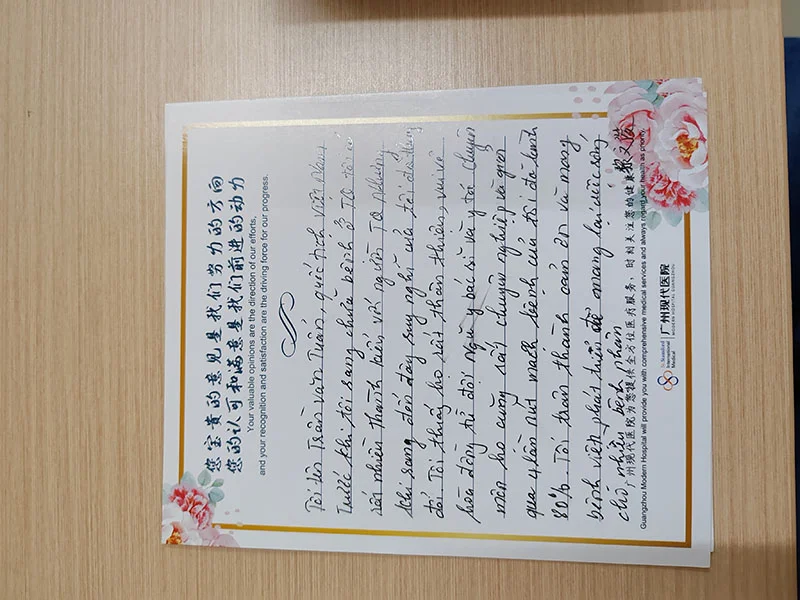 您宝贵的意见是我们努力的方向
您的认可和满意是我们前进的动力
Your valuable opinions are the direction of our efforts,
and your recognition and satisfaction are the driving force for our progress.
Tôi tên Trần văn Tuấn, quốc tịch việt Nam
Trước khi tôi sang chữa bệnh ở TQ tôi có
rất nhiều Thành kiến với người TQ Nhưng
khi sang đến đây suy nghĩ của tôi đã thay
đổi Tôi thấy họ rất thân thiện, vui vẻ
hòa đồng từ đội Ngũ y bác sĩ và y tá chuyên
môn họ cũng rất chuyên nghiệp, và giờ
qua 4 lần nút mạch bệnh của tôi đã lành
80%. Tôi trân thành cảm ơn và mong
bệnh viện phát triển để mang lại cuộc sống
cho nhiều bệnh nhân
广州现代医院为您提供全方位医疗服务，时刻关注您的健康
Guangzhou Modern Hospital will provide you with comprehensive medical services and always regard your health as priority.
St. Stamford
International
Medical
广州现代医院
MODERN HOSPITAL GUANGZHOU